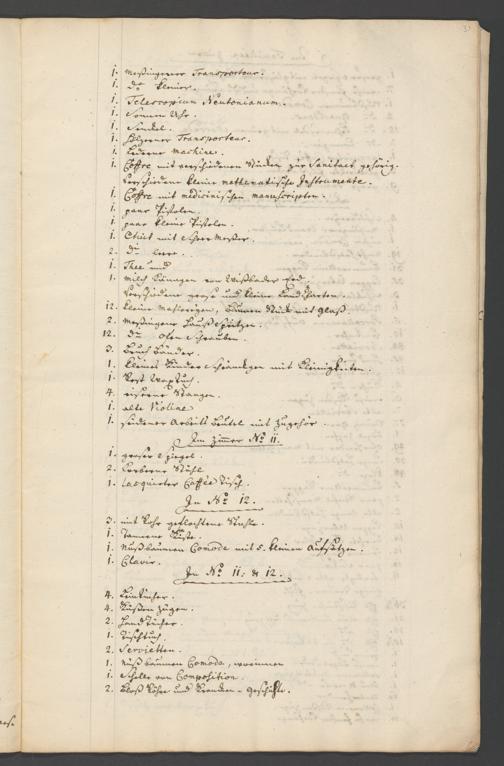 1. meßingener Transporteur.
1. do kleiner.
1. Telescopium Neutonianum.
1. Sonnen Uhr.
1. Senkel.
1. Hölzerner Transporteur.
1. Lederne machine.
1. Coffre mit verschiedenen Stücken zur Sanitaet gehörig.
verschiedene kleine mathematische Instrumente.
1. Coffre mit medicinischen manuscripten.
1. paar Pistolen.
1. paar kleine Pistolen.
1. Etuit mit Scheer Meßer.
2. do leere.
1. Thee und
1. milch Kannen von
verschiedene große und kleine Land Charten.
12. kleine
2. meßingene Hauß Spritzen.
12. do Schrauben.
3. Bruch Bänder.
1. kleines Kinder Schränkgen mit Kleinigkeiten.
1. Wax Tuch.
4. eiserne Stangen.
1. alte Violine
1. seidener Arbeits Beutel mit zugehör.
Im Zimmer No 11.
1. großer Spiegel.
2. Stühl
1. Lacquirter Caffee Tisch.
In No 12.
3. mit Rohr geflochtene Stühle.
1. Tannene Kiste.
1. Nußbäumen Comode mit 5. kleinen Aufsätzen.
1. Clavir.
In No 11. & 12.
4. Leintücher.
4. Küßen Zügen.
2. Hand Tücher.
1. Tischtuch.
2. Servietten.
1. Nuß bäumen Comode, worinnen
1. Schale von Composition.
2. und